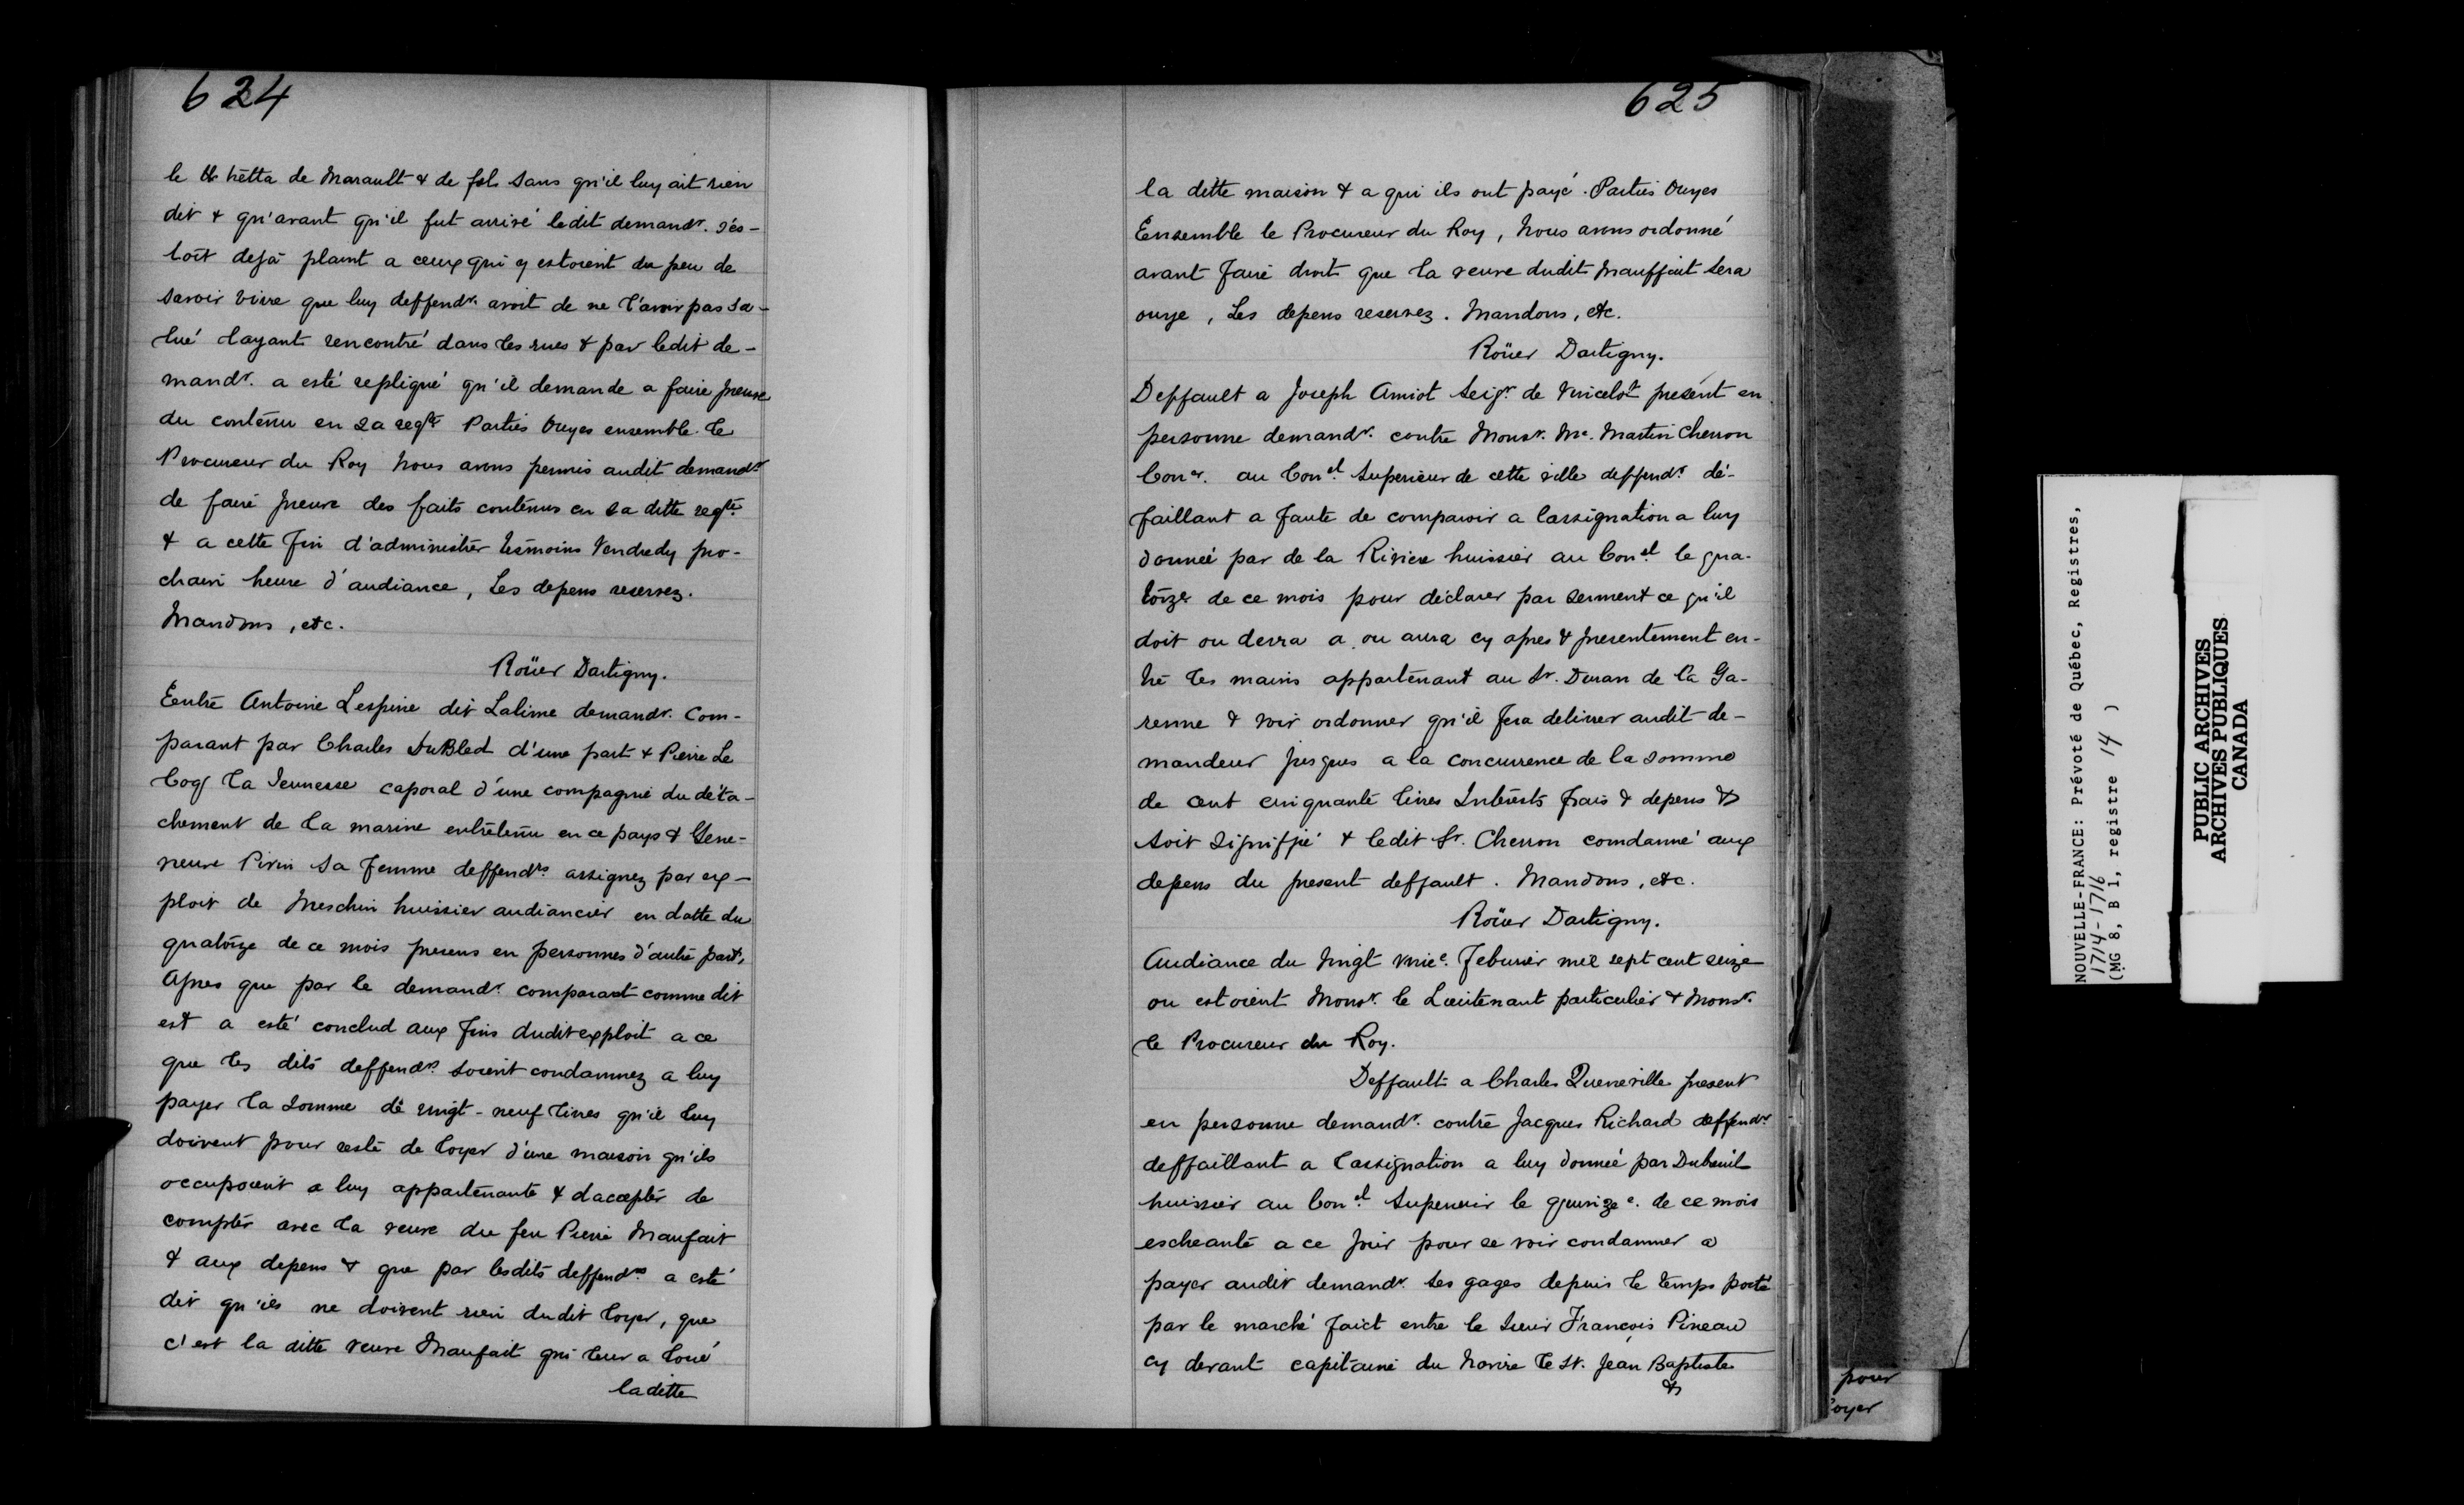 624
le traitta de Marault & de fol sans qu'il luy ait rien
dit & qu'avant qu'il fut arrivé ledit demandr. s'es-
toit dejà plaint a ceux qui y estoient du peu de
savoir vivre que luy deffendr. avoit de ne l'avoir pas sa-
lué layant rencontré dans les rues & par ledit de-
mandr. a esté repliqué qu'il demande a faire preuve
du contenu en sa reqte Parties Ouyes ensemble le
Procureur du Roy Nous avons permis audit demandr
de faire preuve des faits contenus en sa ditte reqte.
& a cette fin d'administrer tesmoins Vendredy pro-
chain heure d'audiance, Les depens reservez.
Mandons, etc.
Roüer Dartigny.
Entre Antoine Lespine dit Lalime demandr. Com-
parant par Charles DuBled d'une part & Pierre Le
Coq La Jeunesse caporal d'une compagnie du déta-
chement de la marine entretenu en ce pays & Gene-
vieuve Pivin sa femme deffendrs assignez par ex-
ploit de Meschin huissier audiancier en datte du
quatorze de ce mois presens en personnes d'autre part,
Apres que par le demandr. comparant comme dit
est a esté conclud aux fins dudit exploit a ce
que les dits deffendrs. soient condamnez a luy
payer la somme de vingt-neuf livres qu'il luy
doivent pour reste de loyer d'une maison qu'ils
occupoient a luy appartenante & daccepter de
compter avec la veuve du feu Pierre Maufait
& aux depens & que par lesdits deffendrs a esté
dit qu'ils ne doivent rien dudit loyer, que
c'est la ditte veuve Maufait qui leur a loué
laditte
625
la ditte maison & a qui ils ont payé. Parties Ouyes
Ensemble le Procureur du Roy, Nous avons ordonné
avant faire droit que la veuve dudit Mauffait sera
ouye, Les depens reservez. Mandons, etc.
Roüer Dartigny.
Deffault a Joseph Amiot Seigr. de Vincelot present en
personne demandr. contre Monsr. Me. Martin Cherron
Coner. au Conel. Superieur de cette ville deffendr dé-
faillant a faute de comparoir a lassignation a luy
donneé par de la Riviere huissier au Conel le qua-
torze de ce mois pour déclarer par serment ce qu'il
doit ou devra a ou aura cy apres & presentement en-
tre les mains appartenant au Sr. Duran de la Ga-
renne & voir ordonner qu'il fera delivrer audit de-
mandeur jusques a la concurrence de la somme
de cent cinquante livres Interests frais & depens &
soit signiffié & ledit Sr. Cherron comdanné aux
depens du present deffault. Mandons, etc.
Roüer Dartigny.
Audiance du Vingt vnie. Feburier mil sept cent seize
ou estoient Monsr. le Lieutenant particulier & Monsr.
le Procureur du Roy.
Deffault a Charles Queneville present
en personne demandr. contre Jacques Richard deffendr
deffaillant a lassignation a luy donneé par Dubreuil
huissier au Conel. Superieur le quinzee. de ce mois
escheante a ce jour pour se voir condamner a
payer audit demandr. ses gages depuis le temps porté
par le marché faict entre le sieur François Pineau
cy devant capitaine du Navire le St. Jean Baptiste
&
pour
oyer
NOUVELLE-FRANCE: Prévoté de Québec, Registres,
1714-1716
(MG 8, B 1, registre 14 )
PUBLIC ARCHIVES
ARCHIVES PUBLIQUES
CANADA